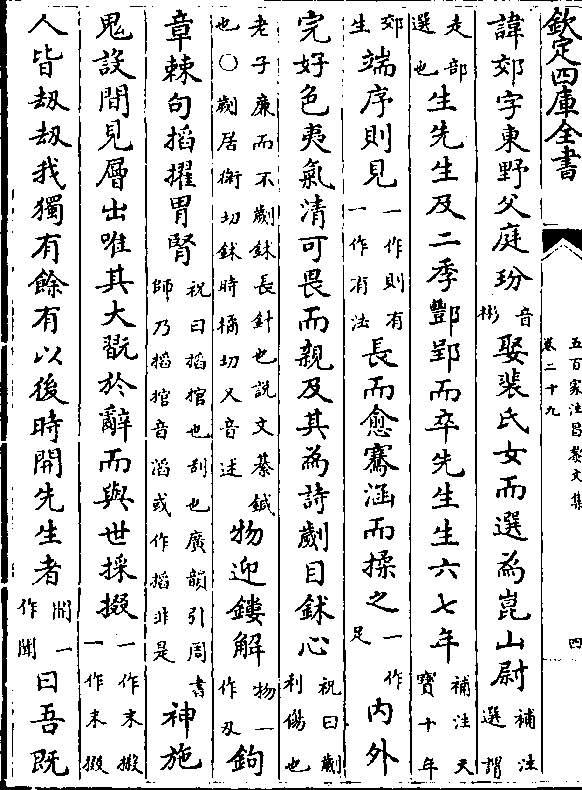 欽定四庫全書
五百家注昌黎文集
卷二十九
四
諱郊字東野父庭玢音彬娶裴氏女而選為崑山尉補注選謂
走部選也生先生及二季酆郢而卒先生生六七年補注天寶十年
郊生端序則見一作則有一作有法長而愈騫涵而揉之一作足内外
完好色夷氣清可畏而親及其為詩劌目鉥心祝曰劌利傷也
老子廉而不劌鉥長針也說文綦鍼也○劌居衛切鉥時橘切又音述物迎鏤解物一作刃鉤
章棘句搯擢胃腎祝曰搯捾也刮也廣韻引周書師乃搯捾音滔或作搯非是神施
鬼設間見層出唯其大翫於辭而與世採掇一作末掇一作末掇
人皆刼刼我獨有餘有以後時開先生者開一作聞曰吾既